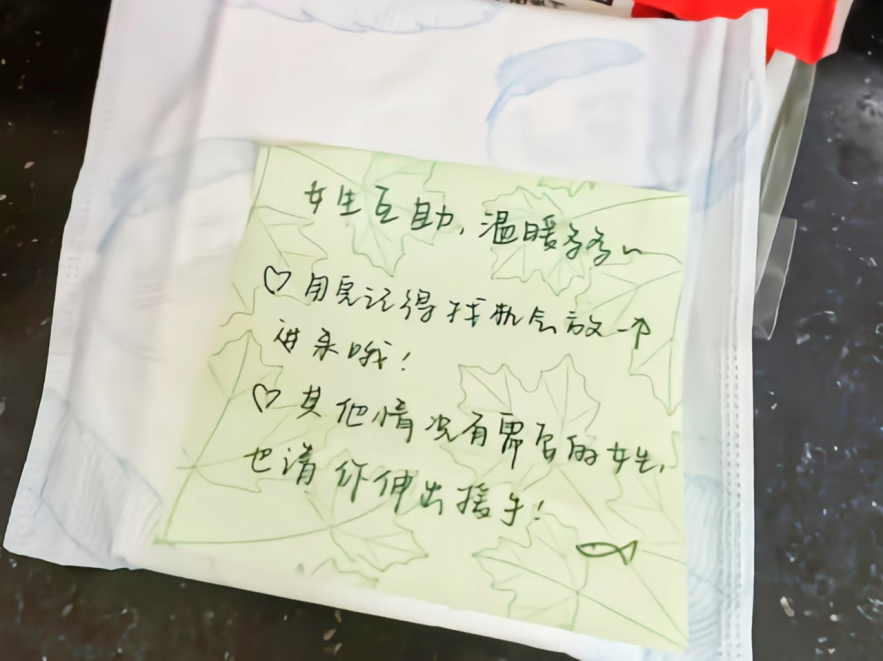 女生互助,温暖多多~
♡ 用完记得找机会放一个
进来哦!
♡ 其他情况有需要的女生,
也请你伸出援手!